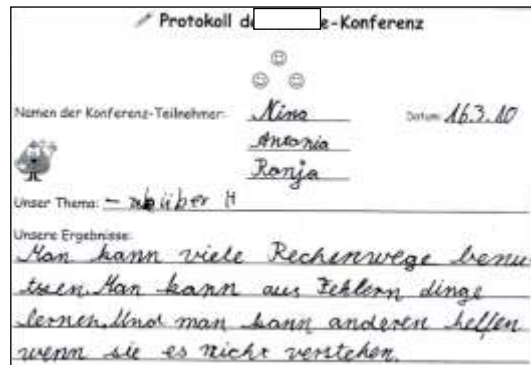 Protokoll de e-Konferenz
Namen der Konferenz-Teilnehmer: Nina Datum: 16.3.10
Antonia
Ronja
Unser Thema: – über H
Unsere Ergebnisse:
Man kann viele Rechenwege benu-
tsen. Man kann aus Fehlern dinge
lernen. Und man kann anderen helfen
wenn sie es nicht verstehen.